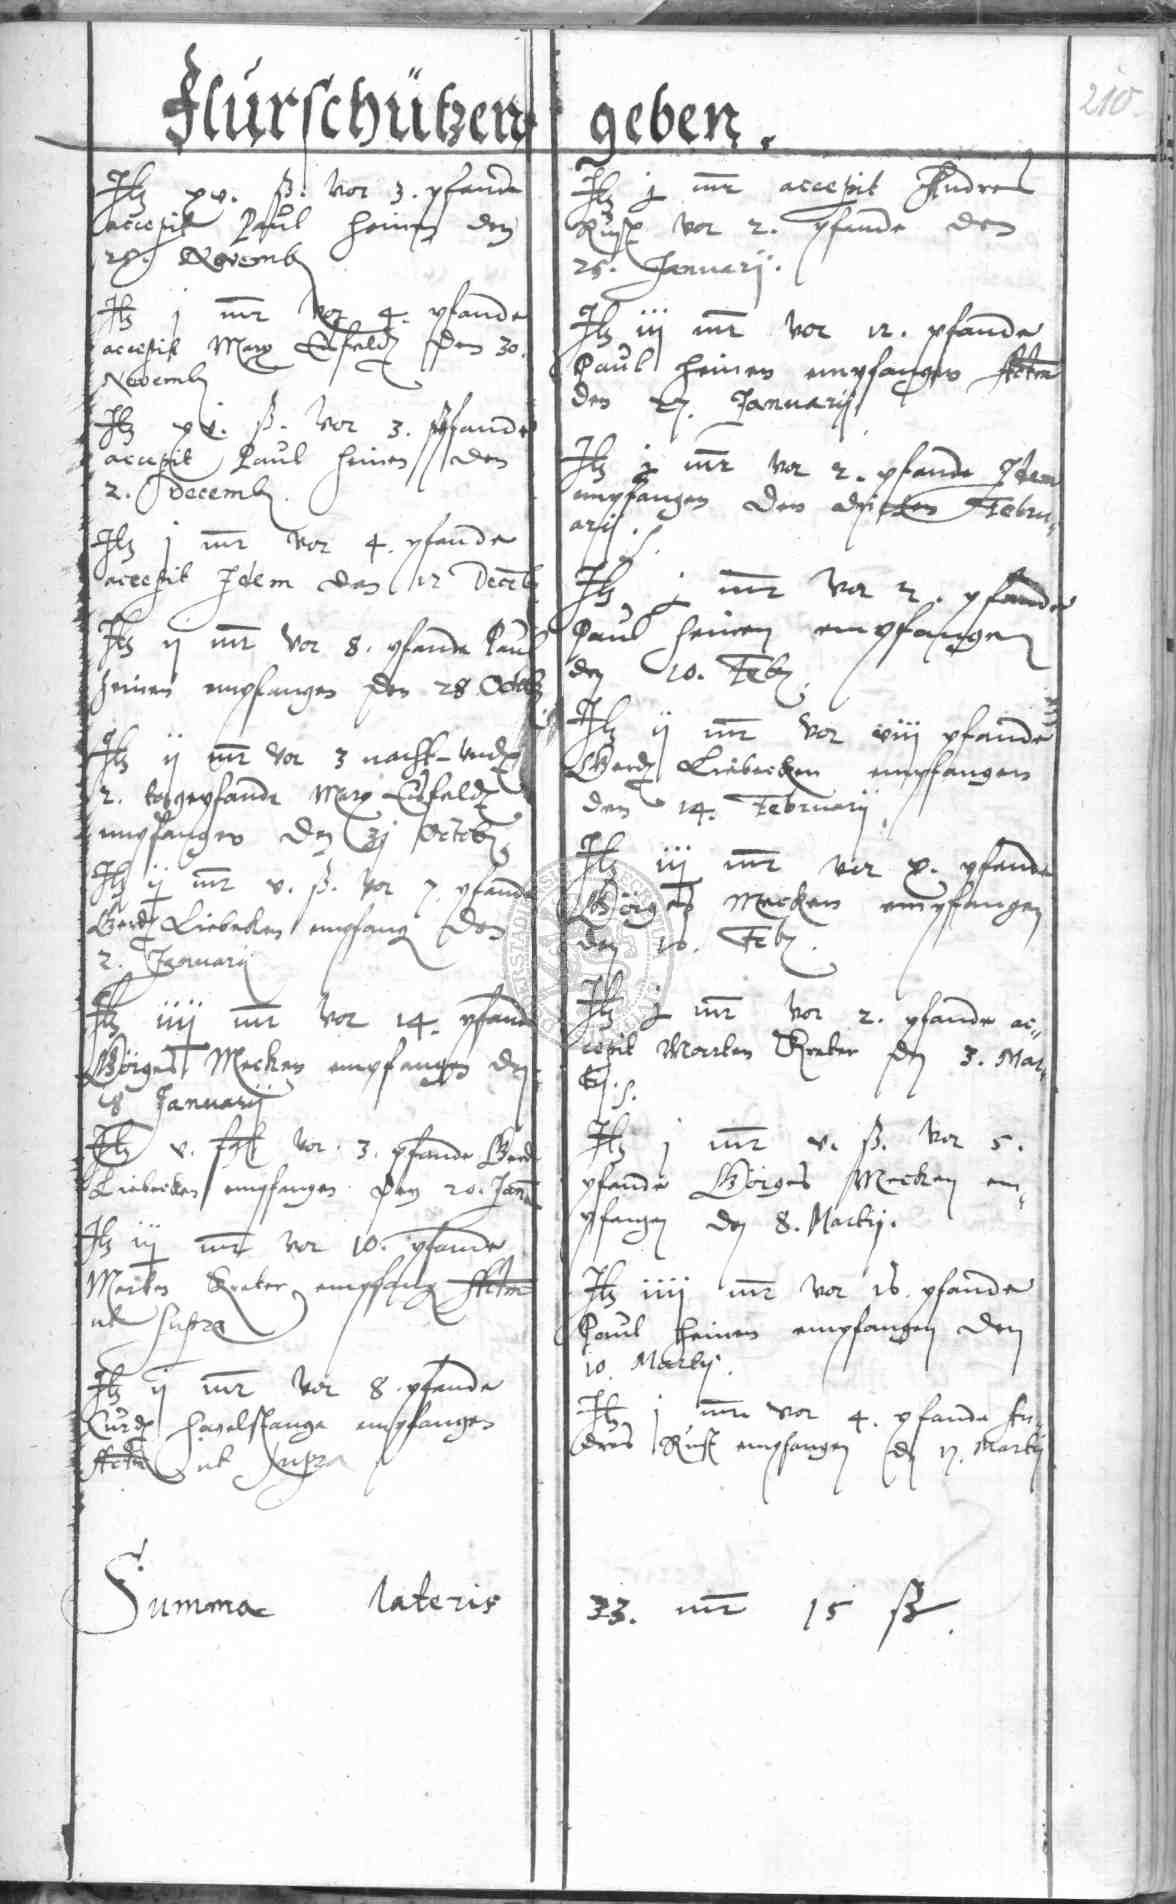 Flurschützen geben.
210.
Itz xv. ß. vor 3. pfande
accepit Paul Heinen den
29. Novemb
Itz j mr vor 4. pfande
accepit Marx Eisfeldt den 30.
Novemb
Itz xv. ß. vor 3. pfande
accepit Paul Heinen den
2. Decemb.
Itz j mr vor 4. pfande
accepit Idem den 12 Decemb
Itz ij mr vor 8. pfande Paul
Heinen empfangen den 28 Octob
Itz ij mr vor 3 nacht- undt
2. tagepfande Marx Eisfeldt
empfangen den 31 Octob
Itz ij mr v. ß. vor 7. pfande
Gerdt Liebecken empfang den
2. Januarij
Itz iiij mr vor 14. pfand
Görges Mecken empfangen den
18 Januarij
Itz v. vor 3. pfande Gerdt
Liebecken empfangen den 20. Jan
Itz iij mr vor 10. pfande
Merten Kreter empfang Actum
ut supra
Itz ij mr vor 8. pfande
Curdt Hagelstange empfangen
Actum ut supra
Itz j mr accepit Andres
Rust vor 2. pfande den
25. Januarij.
Itz iij mr vor 12. pfande
Paul Heinen empfangen Actum
den 27. Januarij
Itz j mr vor 2. pfande Idem
empfangen den dritten Febru-
arij.
Itz j mr vor 2. pfande
Paul Heinen empfangen
den 10. Feb.
Itz ij mr vor viij pfande
Gerdt Liebecken empfangen
den 14. Februarij.
Itz iij mr vor x. pfande
Görges Mecken empfangen
den 10. Feb.
Itz j mr vor 2. pfande ac-
cepit Marten Kreter den 3. Mar-
tij.
Itz j mr v. ß. vor 5.
pfande Görges Mecken em-
pfangen den 8. Martij.
Itz iiij mr vor 16. pfande
Paul Heinen empfangen den
10. Martij.
Itz j mr vor 4. pfande An-
dres Rust empfangen den 17. Martij
Summa lateris 33. mr 15 ß.